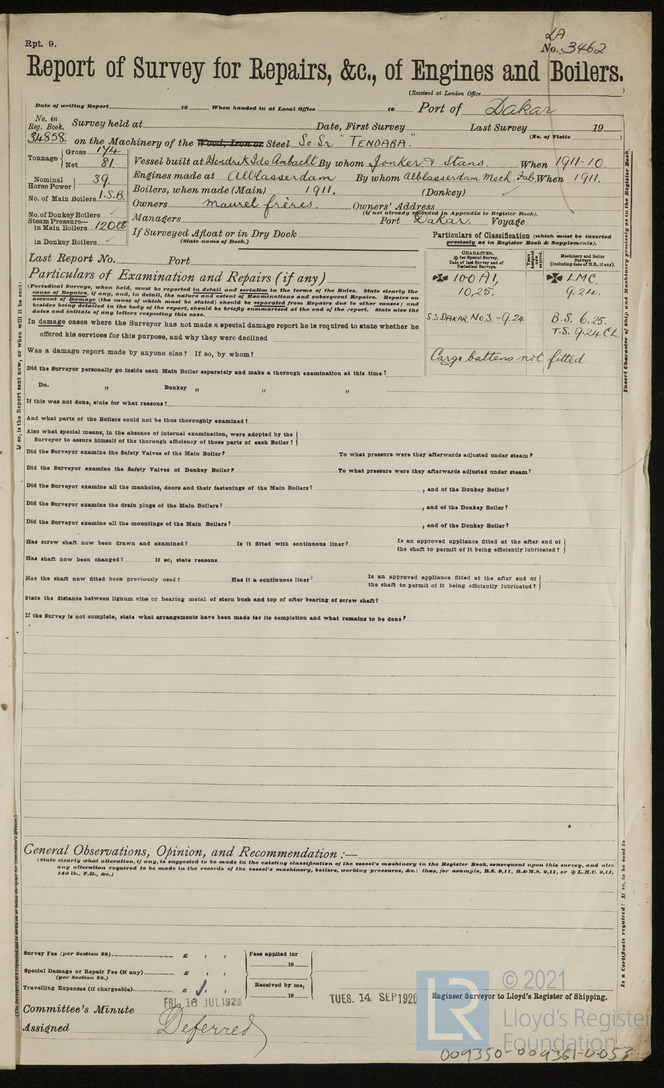 Rpt. 9.
No. 3462
Report of Survey for Repairs, &c., of Engines and Boilers.
(Received at London Office
Date of writing Report 19 When handed in at Local Office 19 Port of Dakar
No. in Reg. Book. Survey held at Date, First Survey Last Survey 19
(No. of Visits )
34858 on the Machinery of the Wood, Iron or Steel Sc Sr "TENDABA."
Tonnage Gross 174 Net 81
Vessel built at Hendrik Ido Ambacht By whom Jonker & Stans. When 1911-10
Nominal Horse Power 39
Engines made at Alblasserdam By whom Alblasserdam Mach. Fab. When 1911.
No. of Main Boilers 1.S.B.
Boilers, when made (Main) 1911. (Donkey)
No. of Donkey Boilers
Owners Maurel frères. Owners' Address
(If not already recorded in Appendix to Register Book).
Steam Pressure— in Main Boilers 120
Managers Port Dakar. Voyage
in Donkey Boilers
If Surveyed Afloat or in Dry Dock
(State name of Dock.)
Particulars of Classification (which must be inserted precisely as in Register Book & Supplements).
CHARACTER, for Special Survey, Date of last Survey and of Periodical Surveys.
Machinery and Boiler Surveys (including date of N.B., if any).
✠ 100 A1, ✠ LMC,
10,25. 9.24.
S.S. DAKAR. No 3 - 9.24 B.S. 6,25.
T.S. 9,24 CL
Cargo battens not fitted
Last Report No. Port
Particulars of Examination and Repairs (if any)
(Periodical Surveys, when held, must be reported in detail and seriatim in the terms of the Rules. State clearly the
cause of Repairs, if any, and, in detail, the nature and extent of Examinations and subsequent Repairs. Repairs on
account of Damage (the cause of which must be stated) should be separated from Repairs due to other causes; and
besides being detailed in the body of the report, should be briefly summarised at the end of the report. State also the
dates and initials of any letters respecting this case.
In damage cases where the Surveyor has not made a special damage report he is required to state whether he
offered his services for this purpose, and why they were declined
Was a damage report made by anyone else? If so, by whom?
Did the Surveyor personally go inside each Main Boiler separately and make a thorough examination at this time?
Do. " Donkey " " "
If this was not done, state for what reasons?
And what parts of the Boilers could not be thus thoroughly examined?
Also what special means, in the absence of internal examination, were adopted by the
Surveyor to assure himself of the thorough efficiency of those parts of each Boiler?
Did the Surveyor examine the Safety Valves of the Main Boiler? To what pressure were they afterwards adjusted under steam?
Did the Surveyor examine the Safety Valves of Donkey Boiler? To what pressure were they afterwards adjusted under steam?
Did the Surveyor examine all the manholes, doors and their fastenings of the Main Boilers? , and of the Donkey Boiler?
Did the Surveyor examine the drain plugs of the Main Boilers? , and of the Donkey Boiler?
Did the Surveyor examine all the mountings of the Main Boilers? , and of the Donkey Boiler?
Has screw shaft now been drawn and examined? Is it fitted with continuous liner? Is an approved appliance fitted at the after end of
the shaft to permit of it being efficiently lubricated?
Has shaft now been changed? If so, state reasons
Has the shaft now fitted been previously used? Has it a continuous liner? Is an approved appliance fitted at the after end of
the shaft to permit of it being efficiently lubricated?
State the distance between lignum vitæ or bearing metal of stern bush and top of after bearing of screw shaft?
If the Survey is not complete, state what arrangements have been made for its completion and what remains to be done?
General Observations, Opinion, and Recommendation:—
(State clearly what alteration, if any, is suggested to be made in the existing classification of the vessel's machinery in the Register Book, consequent upon this survey, and also
any alteration required to be made in the records of the vessel's machinery, boilers, working pressures, &c.: thus, for example, B.S. 9,11, B.&M.S. 9,11, or ✠ L.M.C. 9,11,
140 lb., F.D., &c.)
Survey Fee (per Section 28) £ : : Fees applied for
19
Special Damage or Repair Fee (if any) £ : :
(per Section 28.)
Travelling Expenses (if chargeable) £ : : Received by me,
19
FRI. 16 JUL 1926 TUES. 14 SEP 1926 Engineer Surveyor to Lloyd's Register of Shipping.
Committee's Minute
Assigned Deferred
© 2021
LR Lloyd's Register
Foundation
009350-009361-0053